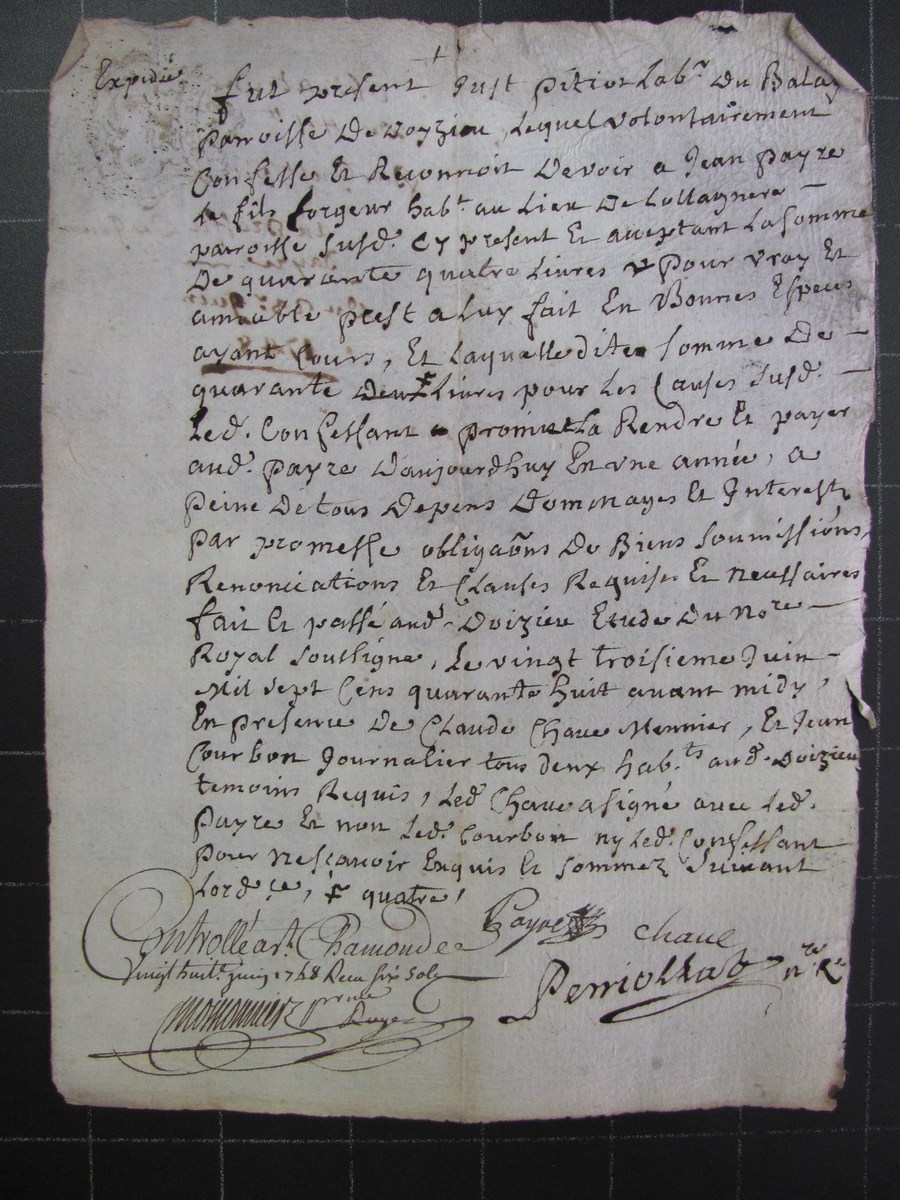 Expedié
fut present Just Pitiot Labr. Du Balay
Parroisse De Doyzieu, Lequel volontairement
Confesse Et Reconnoit Devoir a Jean Payre
Le fils forgeur habt. au Lieu De
parroisse susd. Cy present Et aceptant La somme
De quarante quatre Livres Pour vray Et
amiable prest a Luy fait En Bonnes Especes
ayant Cours, Et Laquelle dite somme De
quarante Livres pour Les Causes susd.
Led. Confessant promet La Rendre Et payer
aud. Payre D'aujourdhuy En vne année, a
Peine De tous Depens Dommages Et Interests
Par promesse obligaōns De Biens soumissions,
Renonciations Et Clauses Requises Et Necessaires
fait Et passé aud. Doizieu Etude Du Nore
Royal soussigne, Le vingt troisieme Juin
Mil sept Cens quarante huit avant midy,
En presence De Claude Chave Mennier, Et Jean
Courbon Journalier tous deux habts. aud. Doizieu
temoins Requis, Led. Chave a signé avec Led.
Payre Et non Led. Courbon ny Led. Confessant
Pour ne sçavoir Enquis Et sommez suivant
Lord.ce, + quatre /
Payre chave
Controllé a St. Chamond le
Vingt huit juin 1748 Receu six sols
Perriollat nre Ral